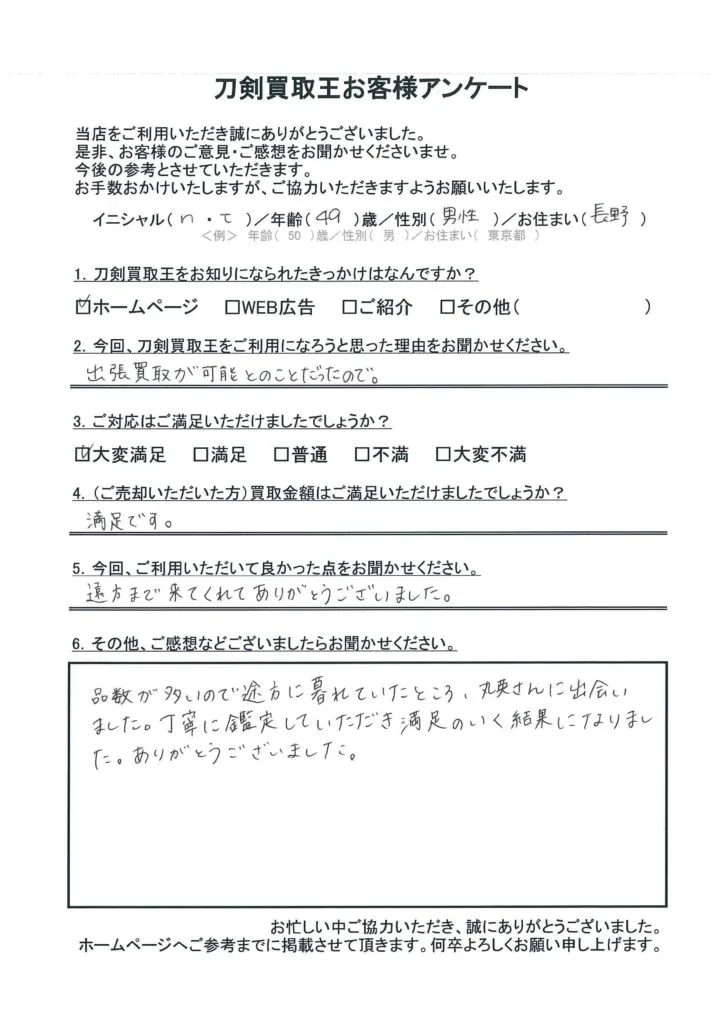 刀剣買取王お客様アンケート
当店をご利用いただき誠にありがとうございました。
是非、お客様のご意見・ご感想をお聞かせくださいませ。
今後の参考とさせていただきます。
お手数おかけいたしますが、ご協力いただきますようお願いいたします。
イニシャル( n ・ t )／年齢( 49 )歳／性別( 男性 )／お住まい( 長野 )
＜例＞ 年齢( 50 )歳／性別( 男 )／お住まい( 東京都 )
1. 刀剣買取王をお知りになられたきっかけはなんですか？
☑ホームページ □WEB広告 □ご紹介 □その他( )
2. 今回、刀剣買取王をご利用になろうと思った理由をお聞かせください。
出張買取が可能とのことだったので。
3. ご対応はご満足いただけましたでしょうか？
☑大変満足 □満足 □普通 □不満 □大変不満
4. （ご売却いただいた方）買取金額はご満足いただけましたでしょうか？
満足です。
5. 今回、ご利用いただいて良かった点をお聞かせください。
遠方まで来てくれてありがとうございました。
6. その他、ご感想などございましたらお聞かせください。
品数が多いので途方に暮れていたところ、丸英さんに出会い
ました。丁寧に鑑定していただき満足のいく結果になりまし
た。ありがとうございました。
お忙しい中ご協力いただき、誠にありがとうございました。
ホームページへご参考までに掲載させて頂きます。何卒よろしくお願い申し上げます。